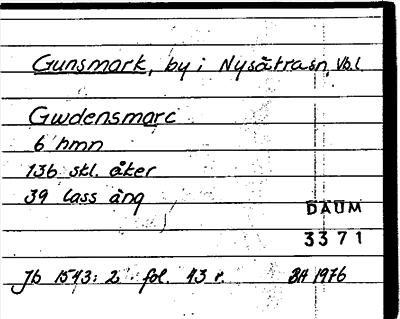 Gunsmark, by i Nysätra sn, Vbl.
Gwdensmarc
6 hmn
136 skl. åker
39 lass äng
DAUM
3371
Jb 1543: 2 fol. 43 r. BH 1976